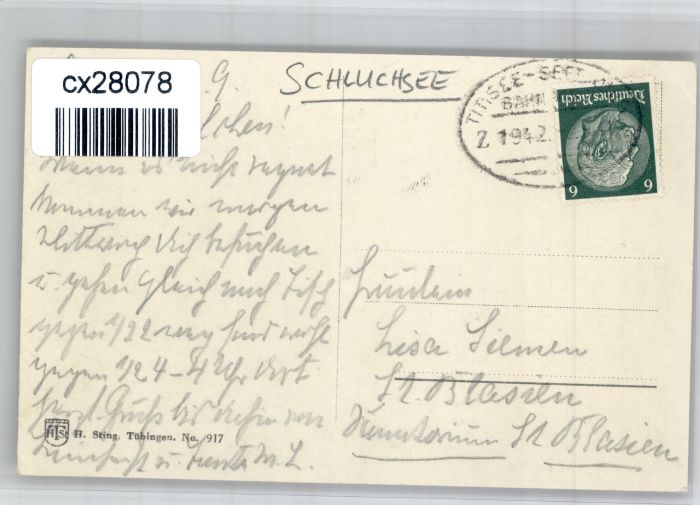 cx28078
9.
SCHLUCHSEE
TITISEE-SEE
BAHN
Z 1942
Deutsches Reich
6 6
Wenn es nicht regnet
kommen wir morgen
Mittwoch Dich besuchen
u. gehen gleich nach Tisch
gegen 1/2 2 weg sind wohl
gegen 1/2 4 - 4 Uhr dort
Herzl. Grüße
u. Tante M. L.
Fräulein
Lisa Siemen
St. Blasien
Sanatorium St Blasien
HSt
H. Sting, Tübingen. No. 917